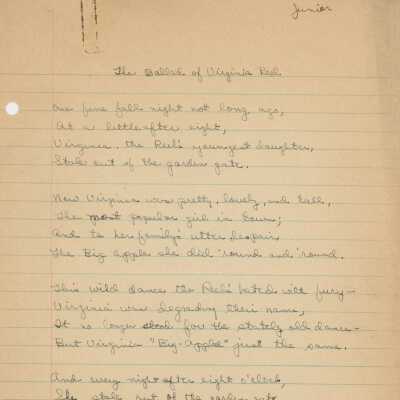 Junior
The Ballad of Virginia Reel
One fine fall night not long ago,
At a little after eight,
Virginia, the Reel's youngest daughter,
Stole out of the garden gate.
Now Virginia was pretty, lovely, and tall,
The most popular girl in town;
And to her family's utter despair
The Big Apple she did 'round and 'round.
This wild dance the Reel's hated with fury—
Virginia was degrading their name,
It no longer stood for the stately old dance—
But Virginia "Big-Appled" just the same.
And every night after eight o'clock,
She stole out of the garden gate